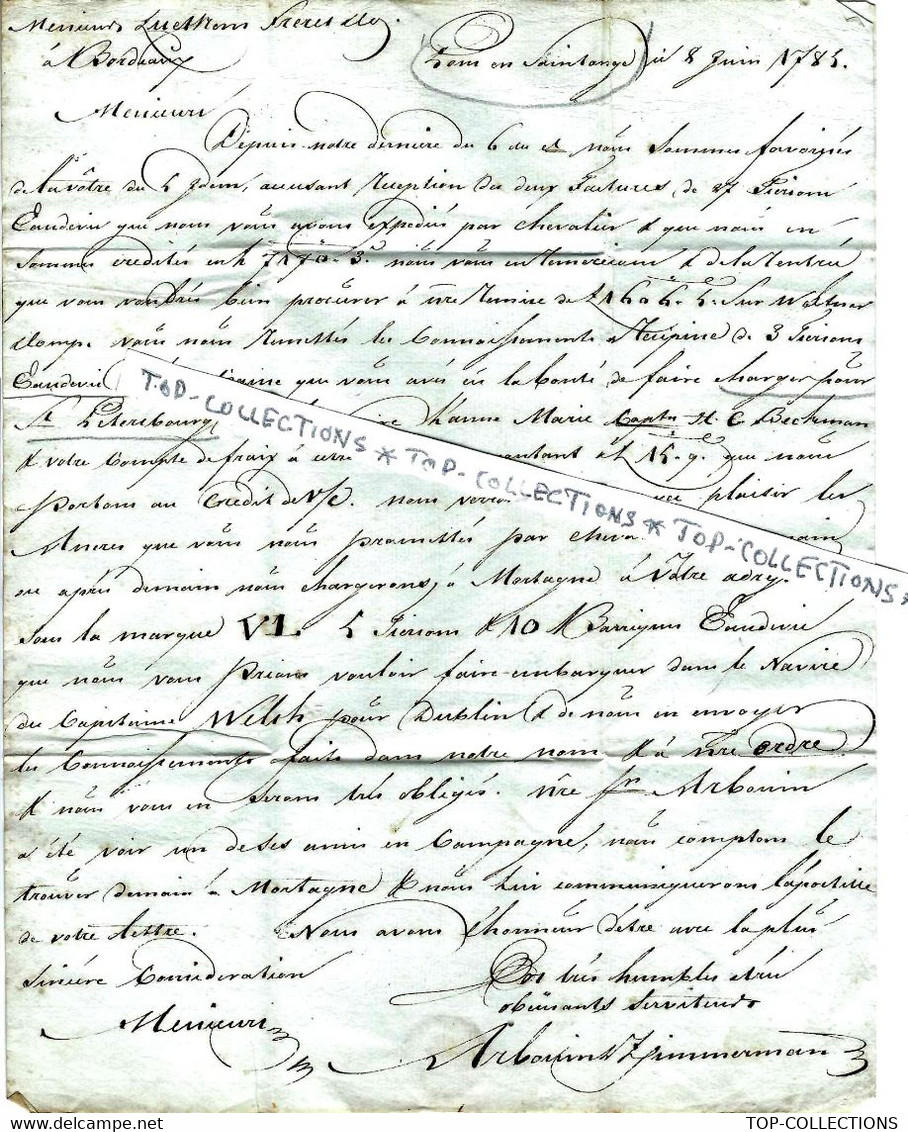 Messieurs Luetkens Freres & Co.
à Bordeaux
Pons en Saintonge ce 8 Juin 1785.
Messieurs
Depuis notre derniere du 6 du ct nous sommes favorisés
de la vôtre du 5 Idem, accusant reception des deux factures de 27 Tiersons
Eaudevie que nous vous avons expediés par Chevalier & que nous en
sommes credités en 7170. 3. nous vous en remercions & de la rentrée
que vous voudrés bien procurer à nre remise de 1605. 5. sur
& Comp. vous nous remettés les Connoissements & de 3 Tiersons
Eaudevie que vous avés eu la bonté de faire charger pour
St Petersbourg Anne Marie Captn H. C. Beckman
& votre Compte de fraix à cette montant à 15. 9. que nous
portons au Credit de V/C. nous plaisir les
Ancres que vous nous promettés par
ou après demain nous chargerons à Mortagne à Vôtre adresse
sous la marque VL 5 Tiersons & 10 Barriques Eaudevie
que nous vous prions vouloir faire embarquer dans le Navire
du Capitaine Welsh pour Dublin & de nous en envoyer
les Connoissements faits dans notre nom & à nre ordre
& nous vous en serons très obligés. nre Sr Arbouin
a été voir un de ses amis en Campagne, nous comptons le
trouver demain à Mortagne & nous lui communiquerons l'apostille
de votre lettre. Nous avons l'honneur d'être avec la plus
sincère Consideration
Vos très humbles & très
obeissants serviteurs
Messieurs
Arbouin & Zimmerman
TOP-COLLECTIONS * TOP-COLLECTIONS * TOP-COLLECTIONS *
TOP-COLLECTIONS